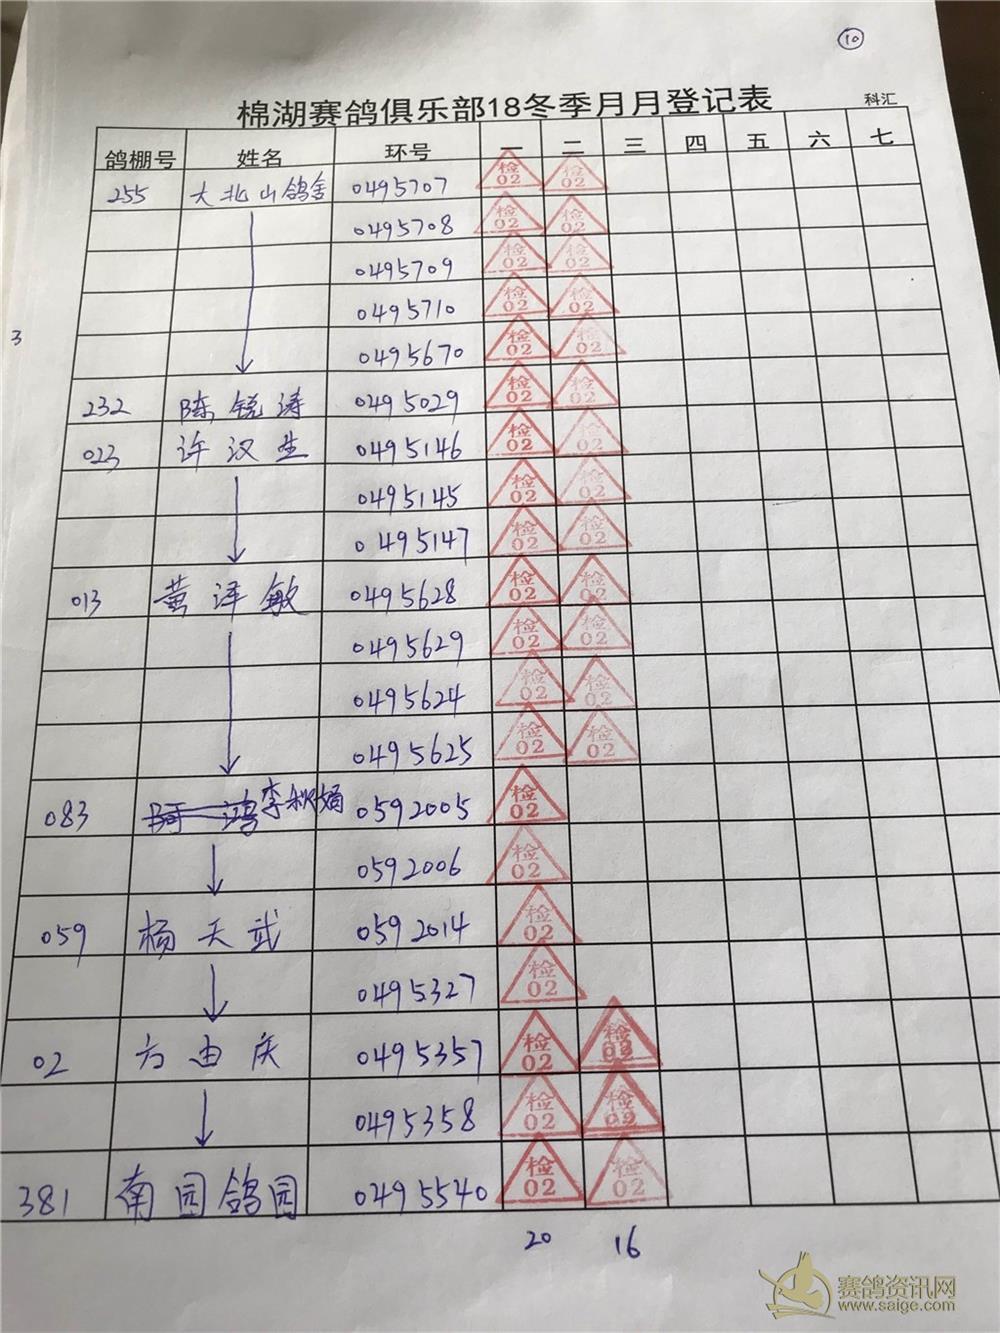 10
棉湖赛鸽俱乐部18冬季月月登记表
科汇
鸽棚号 姓名 环号 一 二 三 四 五 六 七
255 大北山鸽舍 0495707 检02 检02
0495708 检02 检02
0495709 检02 检02
0495710 检02 检02
3
0495670 检02 检02
232 陈锐涛 0495029 检02 检02
023 许汉生 0495146 检02 检02
0495145 检02 检02
0495147 检02 检02
013 黄泽敏 0495628 检02 检02
0495629 检02 检02
0495624 检02 检02
0495625 检02 检02
083 李秋娟 0592005 检02
0592006 检02
059 杨天武 0592014 检02
0495327 检02
02 方由庆 0495357 检02 检02
0495358 检02 检02
381 南园鸽园 0495540 检02 检02
20 16
赛鸽资讯网
www.saige.com